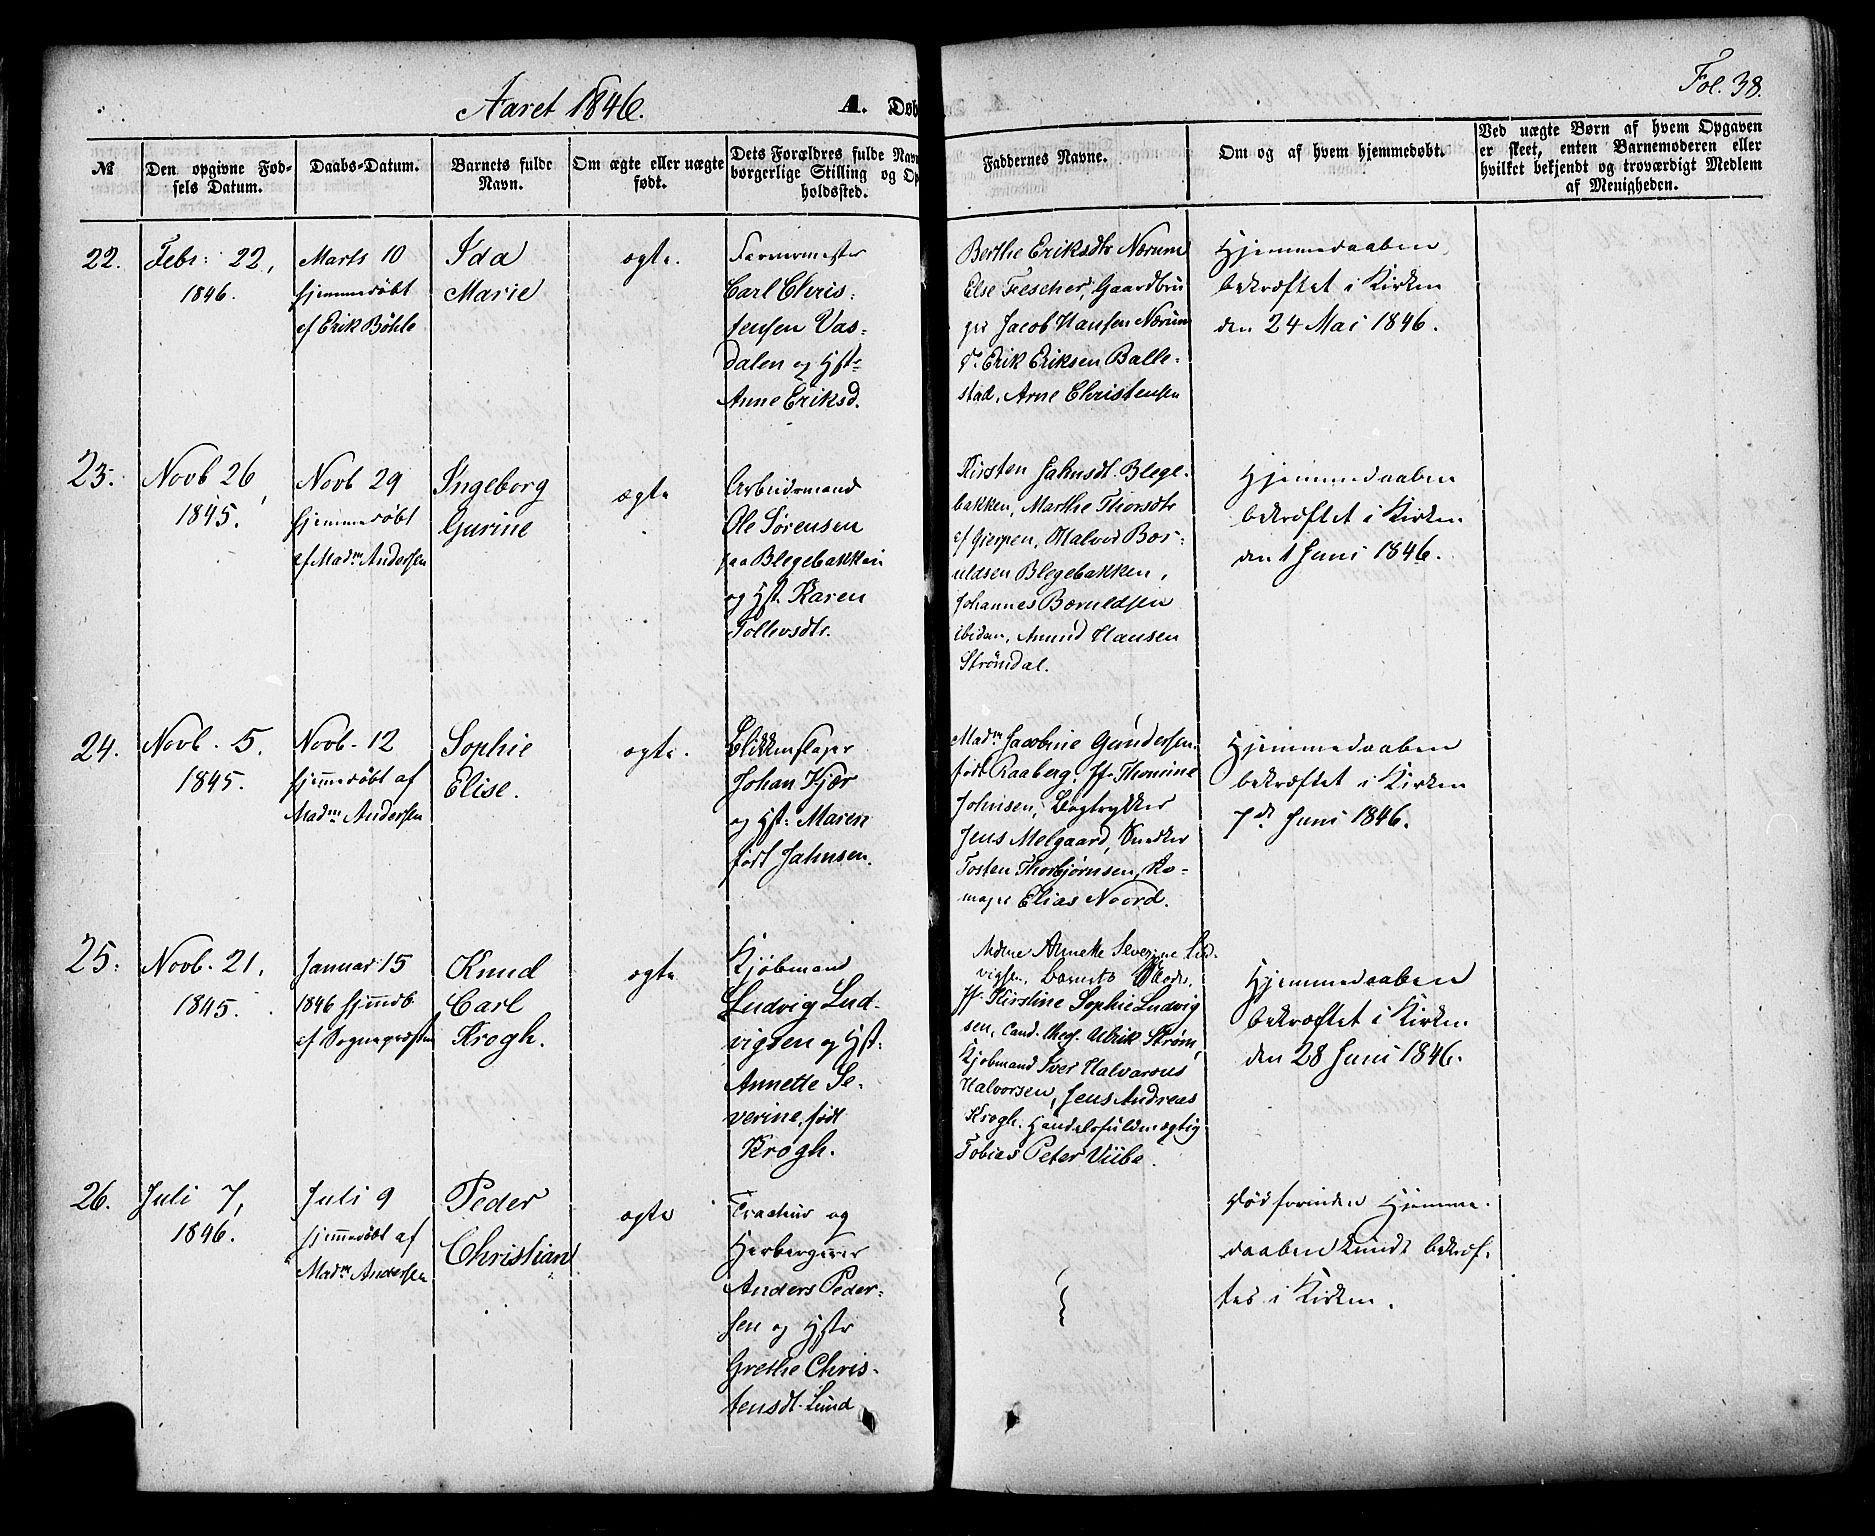 Aaret 1846.
A. Døb
Fol. 38.
№
Den opgivne Fød-
sels Datum.
Daabs-Datum.
Barnets fulde
Navn.
Om ægte eller uægte
født.
Dets Forældres fulde Navn
borgerlige Stilling og Op
holdssted.
Faddernes Navne.
Om og af hvem hjemmedøbt.
Ved uægte Børn af hvem Opgaven
er skeet, enten Barnemoderen eller
hvilket bekjendt og troværdigt Medlem
af Menigheden.
22.
Febr: 22,
1846.
Marts 10
hjemmedøbt
af Erik Bøhle
Ida
Marie
ægte.
Farvermester
Carl Chris-
tensen Vas-
dalen og Hst.
Anne Eriksd.
Berthe Eriksdtr Nærum
Else Fescher, Gaardbru
ger Jacob Hansen Nærum
do. Erik Eriksen Balle-
stad, Arne Christensen
Hjemmedaaben
bekræftet i Kirken
den 24 Mai 1846.
23.
Novb 26,
1845.
Novb 29
hjemmedøbt
af Madm Andersen
Ingeborg
Gurine
ægte
Arbeidsmand
Ole Sørensen
paa Blegebakken
og Hst. Karen
Tollevsdtr.
Kirsten Jahnsdt. Blege-
bakken, Marthe Thorsdtr
af Gjerpen, Halvor Bor-
uldsen Blegebakken,
Johannes Boruldsen
ibidem, Amund Hansen
Strømdal.
Hjemmedaaben
bekræftet i Kirken
den 1 Juni 1846.
24.
Novb. 5.
1845.
Novb. 12
hjemmedøbt af
Madm Andersen
Sophie
Elise.
ægte.
Blikkenslager
Johan Kjær
og Hst: Maren
født Jahnsen.
Madm Jacobine Gundersen
født Raaberg, Jf. Thomine
Johnsen, Bogtrykker
Jens Melgaard, Snedker
Tosten Thorbjørnsen, Ko-
mager Elias Noord.
Hjemmedaaben
bekræftet i Kirken
7de Juni 1846.
25.
Novb. 21.
1845.
Januar 15
1846 hjemdb.
af Sognepræsten
Knud
Carl
Krogh.
ægte
Kjøbmand
Ludvig Lud-
vigsen og Hst:
Annette Se-
verine, født
Krogh.
Mdme Annette Severine Lud-
vigsen, Barnets Moder,
Jf. Kirstine Sophie Ludvig
sen, Cand. theol. Ulrik Strøm,
Kjøbmand Iver Halvorsen
Halvorsen, Jens Andreas
Krogh. Handelsfuldmægtig
Tobias Peter Viibe.
Hjemmedaaben
bekræftet i Kirken
den 28 Juni 1846.
26.
Juli 7,
1846.
Juli 9
hjemmedøbt af
Madm Andersen
Peder
Christian
ægte
Tracteur og
Herbergerer
Anders Peder-
sen og Hstr
Grethe Chris-
tensdt. Lund
Død forinden Hjemme-
daaben kunde bekræf-
tes i Kirken.